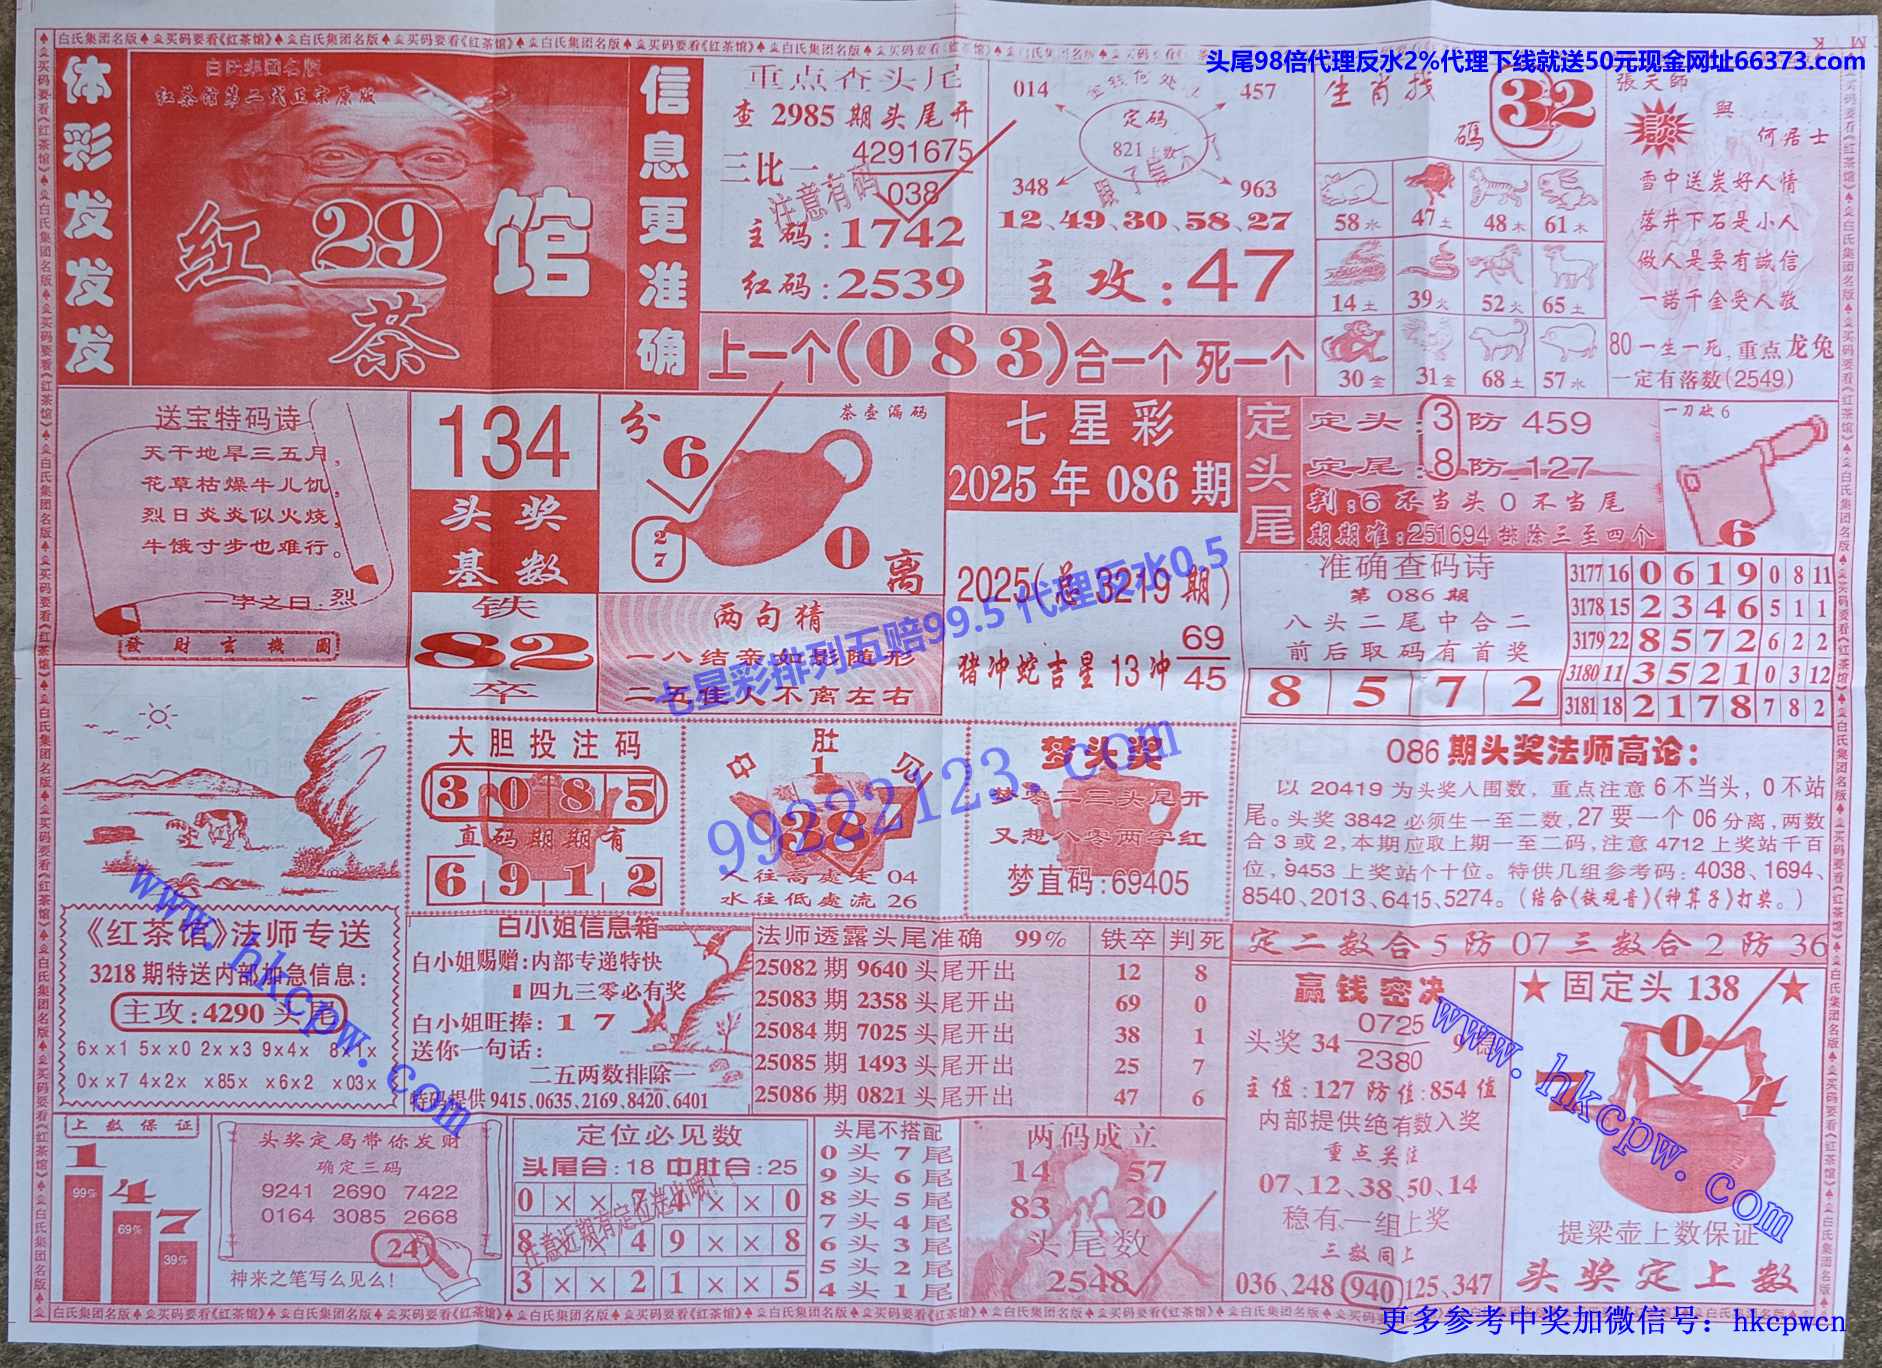 白氏集团名版♠买码要看《红茶馆》♠白氏集团名版♠买码要看《红茶馆》♠白氏集团名版
头尾98倍代理反水2%代理下线就送50元现金网址66373.com
体彩发发发
白氏集团名版
红茶馆第二代正宗原版
红茶馆
29
信息更准确
重点杳头尾
查 2985 期头尾开
三比一
4291675
038
注意有码
主码:1742
红码:2539
014
457
定码
821上数
348
963
12、49、30、58、27
主攻:47
上一个(083)合一个 死一个
生肖找碼
32
58水 47土 48木 61木
14土 39火 52火 65土
30金 31金 68土 57水
張天師
與
談
何居士
雪中送炭好人情
落井下石是小人
做人是要有誠信
一諾千金受人敬
80一生一死,重点龙兔
一定有落数(2549)
送宝特码诗
天干地旱三五月,
花草枯燥牛儿饥,
烈日炎炎似火烧,
牛饿寸步也难行。
一字之曰:烈
發財玄機圖
134
头奖
基数
铁
82
卒
分
6
茶壶漏码
27
0
离
两句猜
一八结亲如影随形
二五佳人不离左右
七星彩
2025年086期
2025(总3219期)
猪冲蛇吉星13冲
69
45
七星彩排列五赔99.5 代理反水0.5
定头尾
定头:3防 459
定尾:8防 127
判:6不当头0不当尾
期期准:251694排除三至四个
一刀砍6
6
准确查码诗
第 086 期
八头二尾中合二
前后取码有首奖
8 5 7 2
3177 16 0 6 1 9 0 8 11
3178 15 2 3 4 6 5 1 1
3179 22 8 5 7 2 6 2 2
3180 11 3 5 2 1 0 3 12
3181 18 2 1 7 8 7 8 2
大胆投注码
3 0 8 5
直码期期有
6 9 1 2
中肚见
1
38
人往高處走 04
水往低處流 26
梦头奖
梦零二三头尾开
又想八零两字红
梦直码:69405
99222123.com
086期头奖法师高论:
以 20419 为头奖人围数,重点注意6不当头,0不站
尾。头奖 3842 必须生一至二数,27要一个06分离,两数
合3或2,本期应取上期一至二码,注意 4712 上奖站千百
位,9453 上奖站个十位。特供几组参考码:4038、1694、
8540、2013、6415、5274。(结合《铁观音》《神算子》打奖。)
www.hkcpw.com
《红茶馆》法师专送
3218期特送内部加急信息:
主攻:4290头尾
6××1 5××0 2××3 9×4× 8×1×
0××7 4×2× ×85× ×6×2 ×03×
白小姐信息箱
白小姐赐赠:内部专递特快
四九三零必有奖
白小姐旺捧:17
送你一句话:
二五两数排除一
特码提供9415、0635、2169、8420、6401
法师透露头尾准确 99% 铁卒 判死
25082期 9640 头尾开出 12 8
25083期 2358 头尾开出 69 0
25084期 7025 头尾开出 38 1
25085期 1493 头尾开出 25 7
25086期 0821 头尾开出 47 6
定二数合5防07三数合2防36
赢钱密决
头奖34
0725
2380
主值:127 防值:854值
内部提供绝有数入奖
重点关注
07、12、38、50、14
稳有一组上奖
三数同上
036、248 940 125、347
★固定头138★
0
7
4
提梁壶上数保证
头奖定上数
www.hkcpw.com
上数保证
1
4
7
99%
69%
39%
头奖定局带你发财
确定三码
9241 2690 7422
0164 3085 2668
24
神来之笔写么见么!
定位必见数
头尾合:18 中肚合:25
0 × × 7 4 × × 0
8 × × 4 9 × × 8
3 × × 2 1 × × 5
头尾不搭配
0头7尾
9头6尾
8头5尾
7头4尾
6头3尾
5头2尾
4头1尾
两码成立
14 57
83 20
头尾数
2548
白氏集团名版♠买码要看《红茶馆》♠白氏集团名版♠买码要看《红茶馆》♠白氏集团名版
更多参考中奖加微信号: hkcpwcn